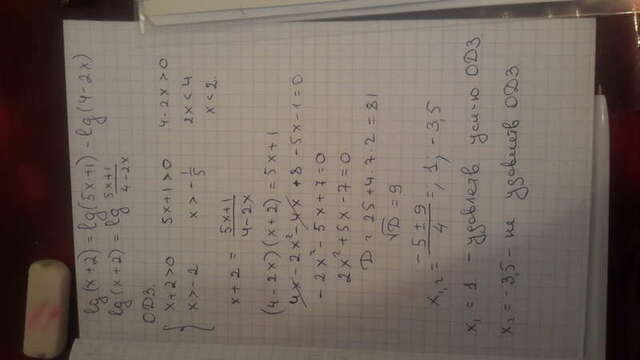 lg(x+2) = lg(5x+1) - lg(4-2x)
lg(x+2) = lg (5x+1)/(4-2x)
ОДЗ.
{ x+2>0 5x+1>0 4-2x>0
x>-2 x>-1/5 2x<4
x<2.
x+2 = (5x+1)/(4-2x)
(4-2x)(x+2) = 5x+1
4x-2x²-4x+8-5x-1=0
-2x²-5x+7=0
2x²+5x-7=0
D = 25+4·7·2=81
√D = 9
x₁,₂ = (-5±9)/4 = 1; -3,5
x₁ = 1 - удовлетв усл-ю ОДЗ
x₂ = -3,5 - не удовлетв ОДЗ.